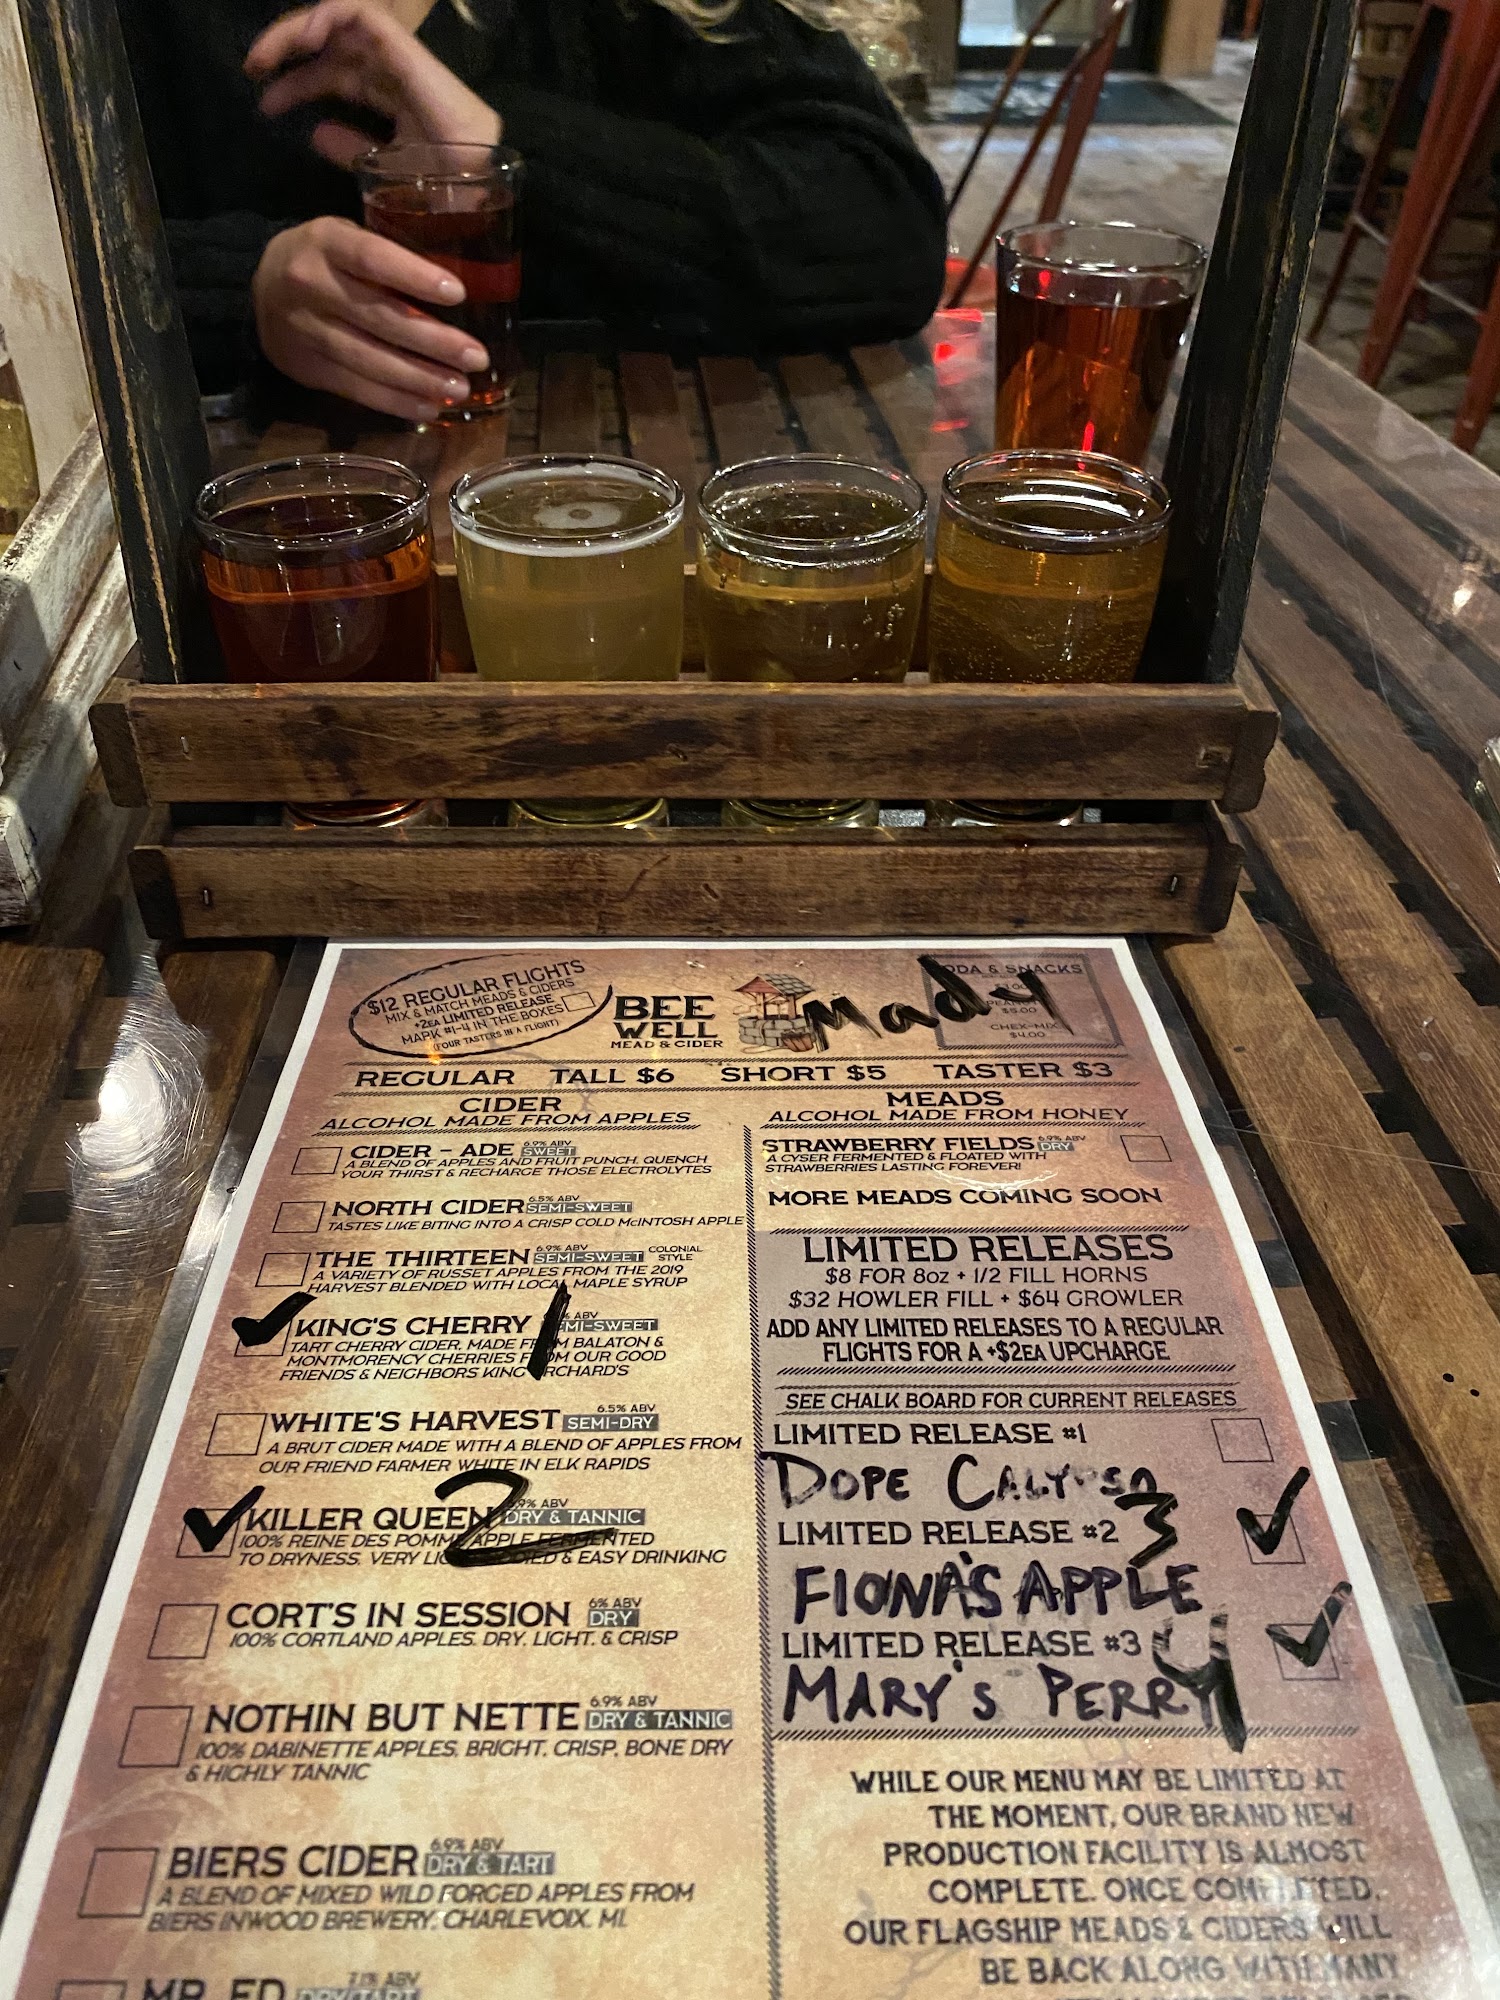 $12 REGULAR FLIGHTS
MIX & MATCH MEADS & CIDERS
+2EA LIMITED RELEASE
MARK #1-4 IN THE BOXES
(FOUR TASTERS IN A FLIGHT)
BEE
WELL
MEAD & CIDER
Mady
ODA & SNACKS
$5.00
CHEX-MIX
$4.00
REGULAR TALL $6 SHORT $5 TASTER $3
CIDER
ALCOHOL MADE FROM APPLES
CIDER - ADE 6.9% ABV SWEET
A BLEND OF APPLES AND FRUIT PUNCH, QUENCH
YOUR THIRST & RECHARGE THOSE ELECTROLYTES
NORTH CIDER 6.5% ABV SEMI-SWEET
TASTES LIKE BITING INTO A CRISP COLD McINTOSH APPLE
THE THIRTEEN 6.9% ABV SEMI-SWEET COLONIAL STYLE
A VARIETY OF RUSSET APPLES FROM THE 2019
HARVEST BLENDED WITH LOCAL MAPLE SYRUP
KING'S CHERRY 1 % ABV EMI-SWEET
TART CHERRY CIDER, MADE FROM BALATON &
MONTMORENCY CHERRIES FROM OUR GOOD
FRIENDS & NEIGHBORS KING ORCHARD'S
WHITE'S HARVEST 6.5% ABV SEMI-DRY
A BRUT CIDER MADE WITH A BLEND OF APPLES FROM
OUR FRIEND FARMER WHITE IN ELK RAPIDS
KILLER QUEEN 2 6.9% ABV DRY & TANNIC
100% REINE DES POMME APPLE FERMENTED
TO DRYNESS, VERY & EASY DRINKING
CORT'S IN SESSION 6% ABV DRY
100% CORTLAND APPLES. DRY, LIGHT, & CRISP
NOTHIN BUT NETTE 6.9% ABV DRY & TANNIC
100% DABINETTE APPLES, BRIGHT, CRISP, BONE DRY
& HIGHLY TANNIC
BIERS CIDER 6.9% ABV DRY & TART
A BLEND OF MIXED WILD FORGED APPLES FROM
BIERS INWOOD BREWERY, CHARLEVOIX, MI
MR. ED 7.1% ABV DRY/TART
MEADS
ALCOHOL MADE FROM HONEY
STRAWBERRY FIELDS 6.9% ABV DRY
A CYSER FERMENTED & FLOATED WITH
STRAWBERRIES LASTING FOREVER!
MORE MEADS COMING SOON
LIMITED RELEASES
$8 FOR 8oz + 1/2 FILL HORNS
$32 HOWLER FILL + $64 GROWLER
ADD ANY LIMITED RELEASES TO A REGULAR
FLIGHTS FOR A +$2EA UPCHARGE
SEE CHALK BOARD FOR CURRENT RELEASES
LIMITED RELEASE #1
DOPE CALYPSO
LIMITED RELEASE #2 3
FIONA'S APPLE
LIMITED RELEASE #3 4
MARY'S PERRY
WHILE OUR MENU MAY BE LIMITED AT
THE MOMENT, OUR BRAND NEW
PRODUCTION FACILITY IS ALMOST
COMPLETE. ONCE COMPLETED,
OUR FLAGSHIP MEADS & CIDERS WILL
BE BACK ALONG WITH MANY